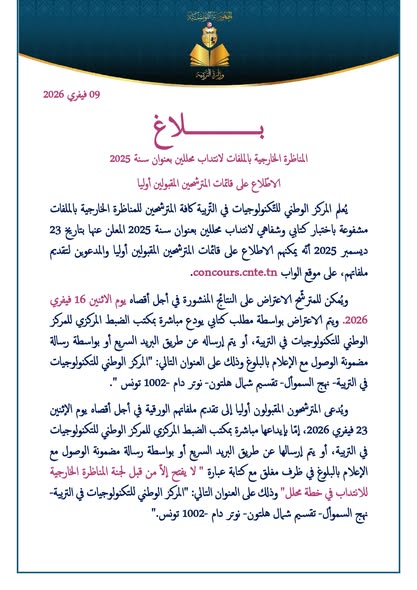 الجمهورية التونسية
وزارة التربية
09 فيفري 2026
بـــــلاغ
المناظرة الخارجية بالملفات لانتداب محللين بعنوان سنة 2025
الاطلاع على قائمات المترشحين المقبولين أوليا
يُعلم المركز الوطني للتكنولوجيات في التربية كافة المترشحين للمناظرة الخارجية بالملفات
مشفوعة باختبار كتابي وشفاهي لانتداب محللين بعنوان سنة 2025 المعلن عنها بتاريخ 23
ديسمبر 2025 أنّه يمكنهم الاطلاع على قائمات المترشحين المقبولين أوليا والمدعوين لتقديم
ملفاتهم، على موقع الواب concours.cnte.tn.
ويُمكن للمترشّح الاعتراض على النتائج المنشورة في أجل أقصاه يوم الاثنين 16 فيفري
2026. ويتم الاعتراض بواسطة مطلب كتابي يودع مباشرة بمكتب الضبط المركزي للمركز
الوطني للتكنولوجيات في التربية، أو يتم إرساله عن طريق البريد السريع أو بواسطة رسالة
مضمونة الوصول مع الإعلام بالبلوغ وذلك على العنوان التالي: "المركز الوطني للتكنولوجيات
في التربية- نهج السموأل- تقسيم شمال هلتون- نوتر دام -1002 تونس ".
ويُدعى المترشحون المقبولون أوليا إلى تقديم ملفاتهم الورقية في أجل أقصاه يوم الإثنين
23 فيفري 2026، إمّا بإيداعها مباشرة بمكتب الضبط المركزي للمركز الوطني للتكنولوجيات
في التربية، أو يتم إرسالها عن طريق البريد السريع أو بواسطة رسالة مضمونة الوصول مع
الإعلام بالبلوغ في ظرف مغلق مع كتابة عبارة " لا يفتح إلاّ من قبل لجنة المناظرة الخارجية
للانتداب في خطة محلل" وذلك على العنوان التالي: "المركز الوطني للتكنولوجيات في التربية-
نهج السموأل- تقسيم شمال هلتون- نوتر دام -1002 تونس."